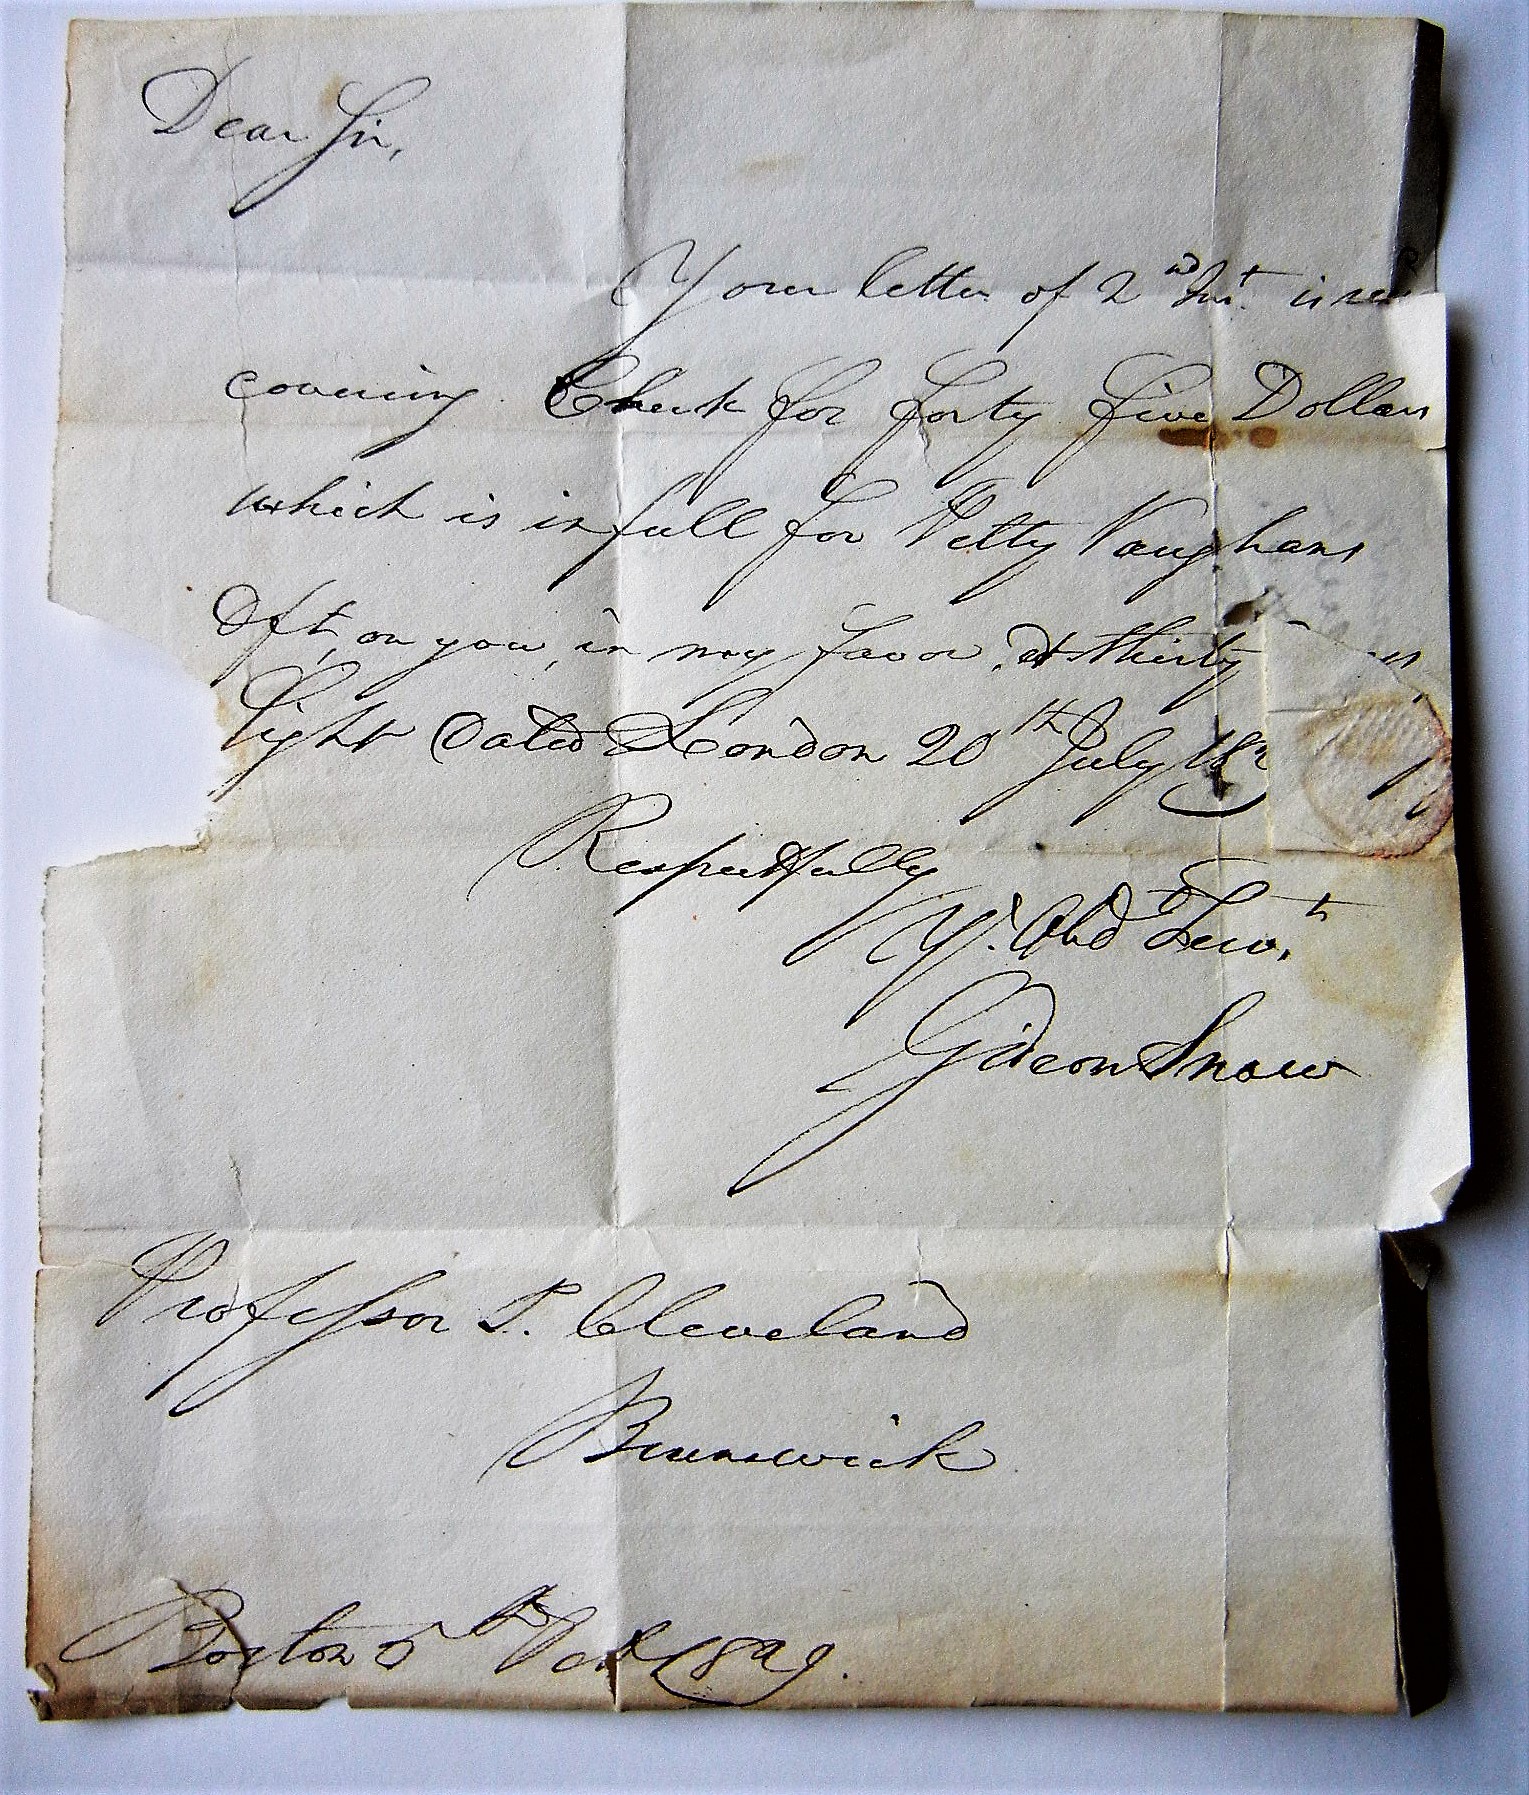 Dear Sir,
Your letter of 2nd Inst. is
covering Check for forty five Dollars
which is in full for Petty Vaughans
Dft, on you, in my favor, At thirty
Sight Dated London 20th July
Respectfully
Yr. Obd Servt
Gideon Snow
Professor P. Cleveland
Brunswick
Boston 5th 1829.